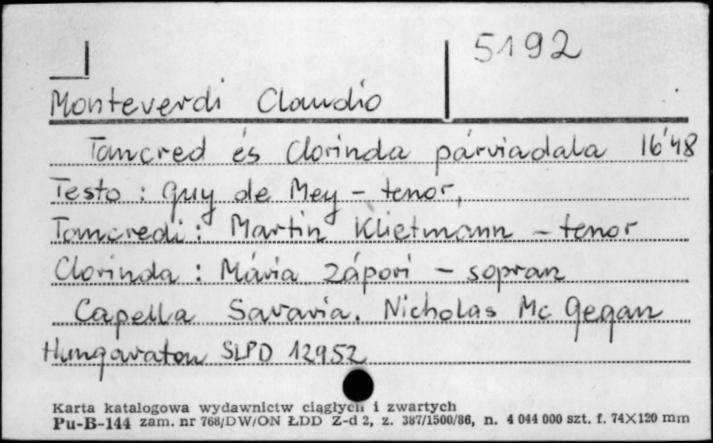 5192
Monteverdi Claudio
Tancred és Clorinda párviadala 16'48
Testo : Guy de Mey - tenor,
Tancredi : Martin Klietmann - tenor
Clorinda : Mária Zápori - sopran
Capella Savaria. Nicholas Mc Gegan
Hungaraton SLPD 12952
Karta katalogowa wydawnictw ciągłych i zwartych
Pu-B-144 zam. nr 768/DW/ON ŁDD Z-d 2, z. 387/1500/86, n. 4 044 000 szt. f. 74X120 mm